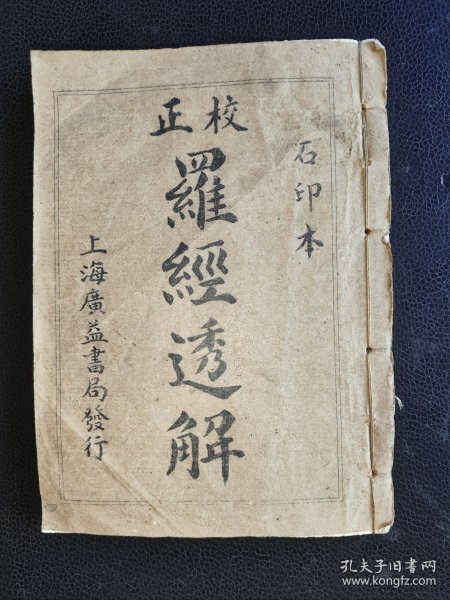 石印本
校正
羅經透解
上海廣益書局發行
孔夫子旧书网
www.kongfz.com